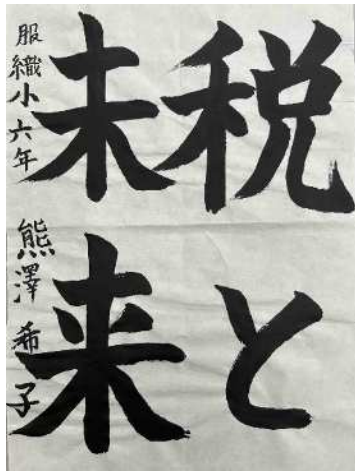 税と
未来
服織小六年 熊澤希子